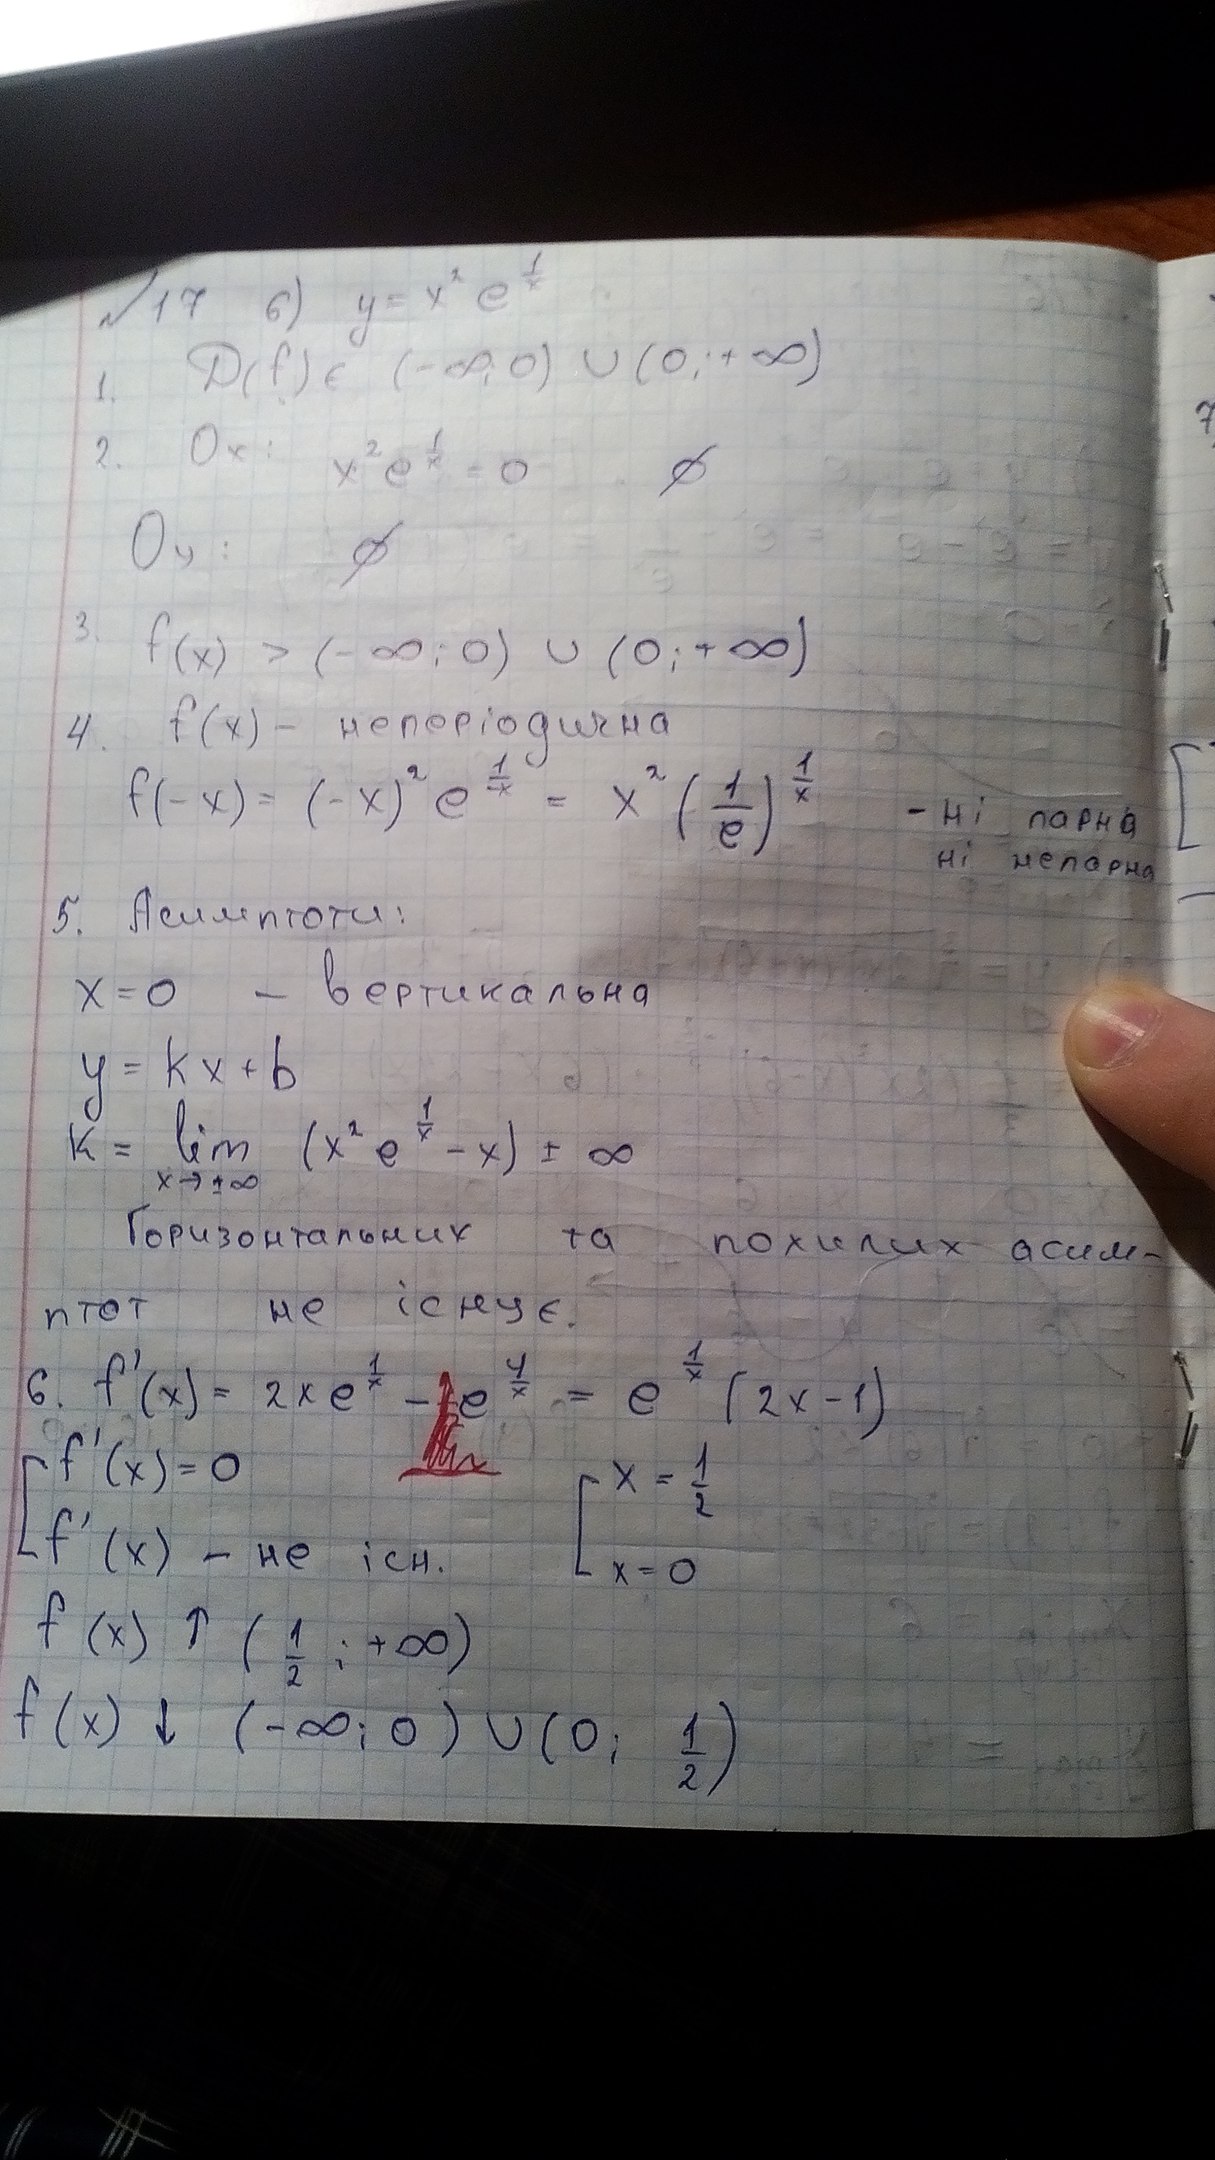 №17 б) y = x² e^(1/x)
1. D(f) ∈ (-∞; 0) ∪ (0; +∞)
2. Ox: x² e^(1/x) = 0 ∅
Oy: ∅
3. f(x) > (-∞; 0) ∪ (0; +∞)
4. f(x) - неперіодична
f(-x) = (-x)² e^(1/-x) = x² (1/e)^(1/x) - ні парна
ні непарна
5. Асимптоти:
x = 0 - вертикальна
y = kx + b
K = lim x→±∞ (x² e^(1/x) - x) ± ∞
Горизонтальних та похилих асим-
птот не існує.
6. f'(x) = 2x e^(1/x) - e^(1/x) = e^(1/x) (2x - 1)
[ f'(x) = 0 [ x = 1/2
f'(x) - не існ. x = 0
f(x) ↑ (1/2; +∞)
f(x) ↓ (-∞; 0) ∪ (0; 1/2)